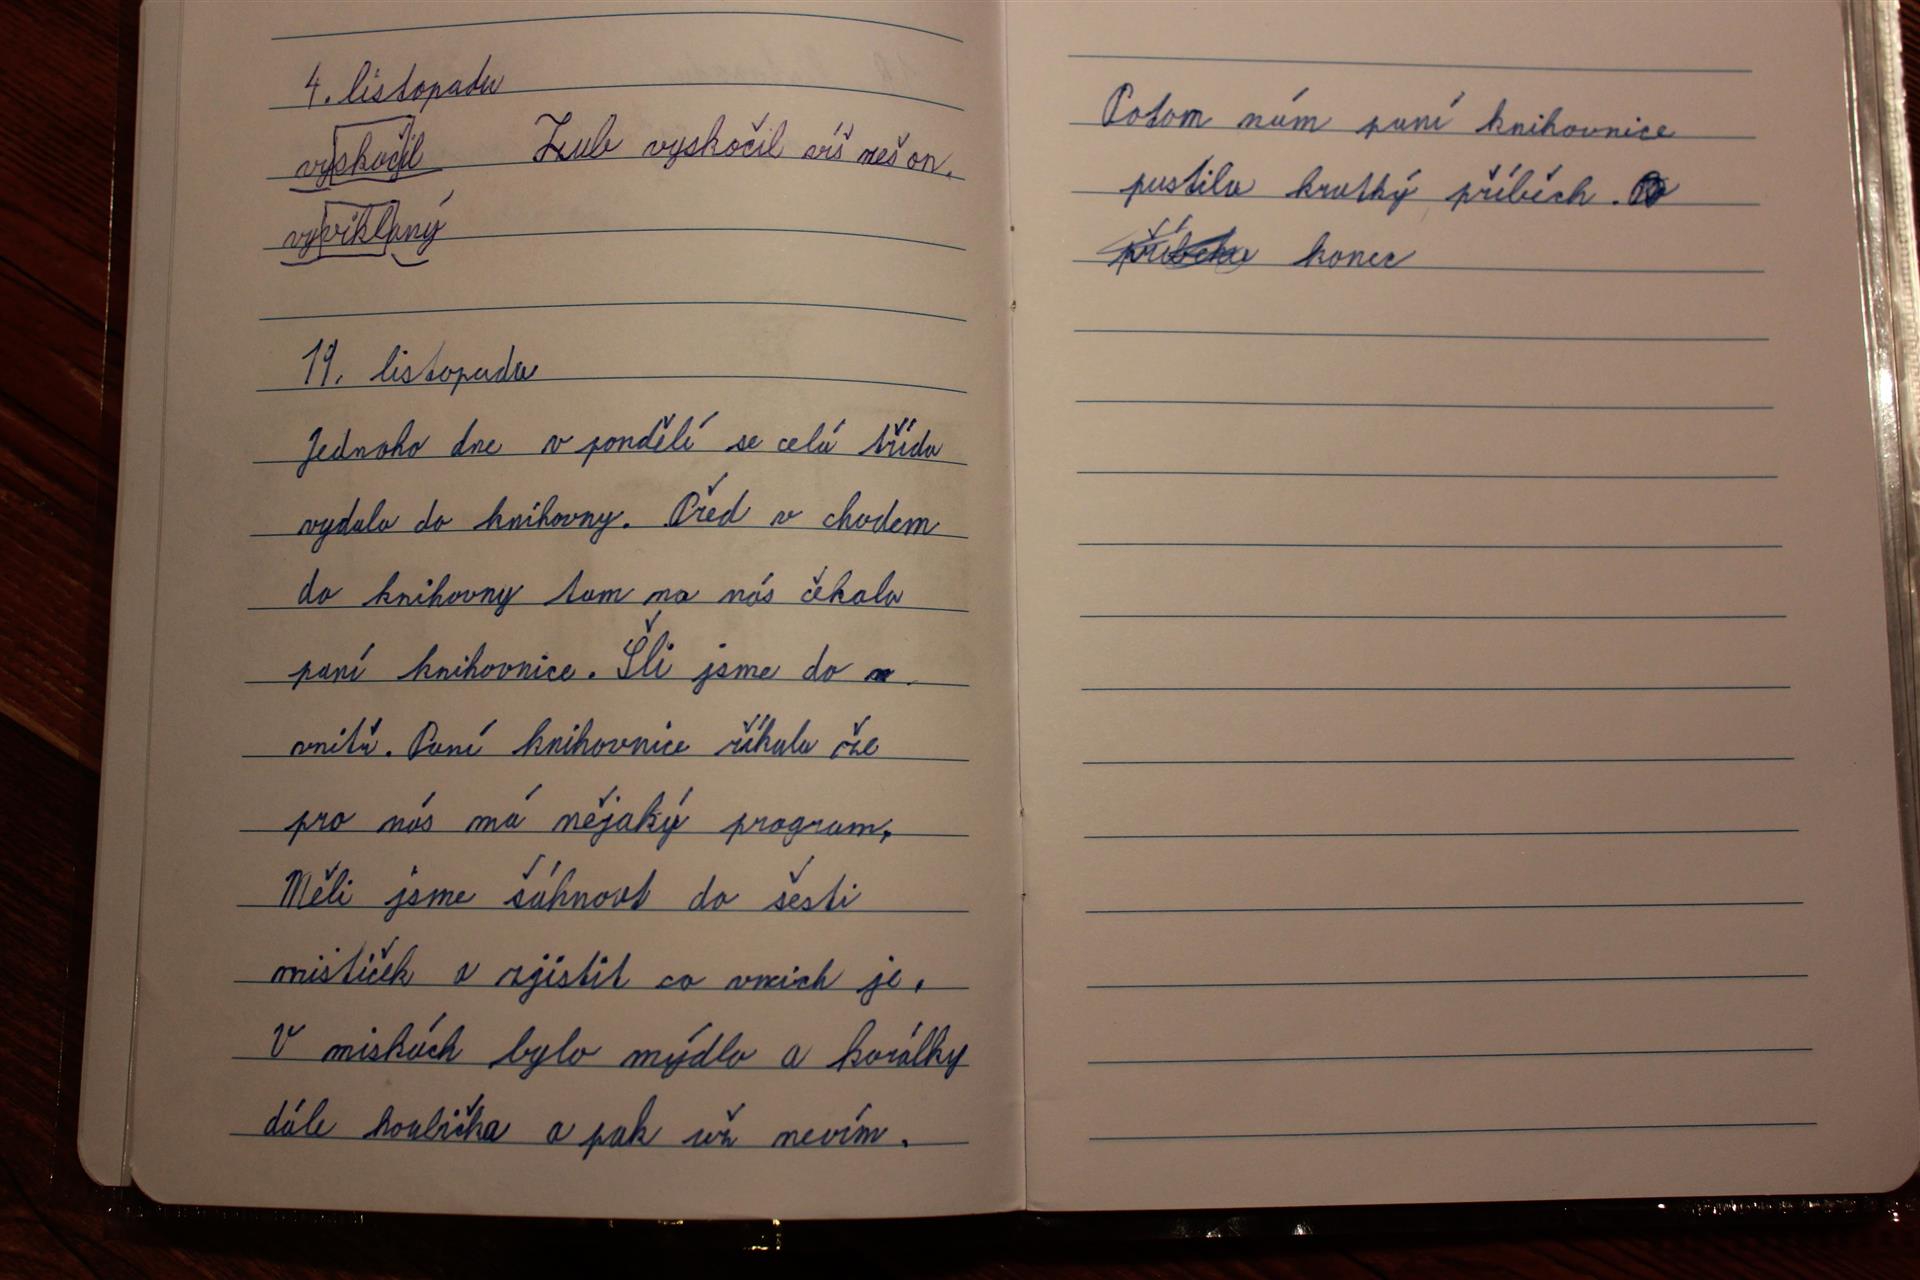 4. listopadu
vyskočil Zub vyskočil víš neš on.
vyviklaný
19. listopadu
Jednoho dne v pondělí se celá třída
vydala do knihovny. Před v chodem
do knihovny tam na nás čekala
paní knihovnice. Šli jsme do
vnitř. Paní knihovnice říkala že
pro nás má nějaký program,
Měli jsme šáhnout do šesti
mističek a zjistit co vnich je.
V miskách bylo mýdlo a korálky
dále houbička a pak už nevím.
Potom nám paní knihovnice
pustila kratký příběch.
konec